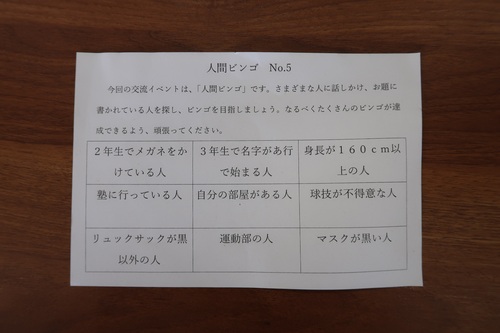 人間ビンゴ　No.5
今回の交流イベントは、「人間ビンゴ」です。さまざまな人に話しかけ、お題に
書かれている人を探し、ビンゴを目指しましょう。なるべくたくさんのビンゴが達
成できるよう、頑張ってください。
２年生でメガネをか
けている人
３年生で名字があ行
で始まる人
身長が１６０ｃｍ以
上の人
塾に行っている人
自分の部屋がある人
球技が不得意な人
リュックサックが黒
以外の人
運動部の人
マスクが黒い人